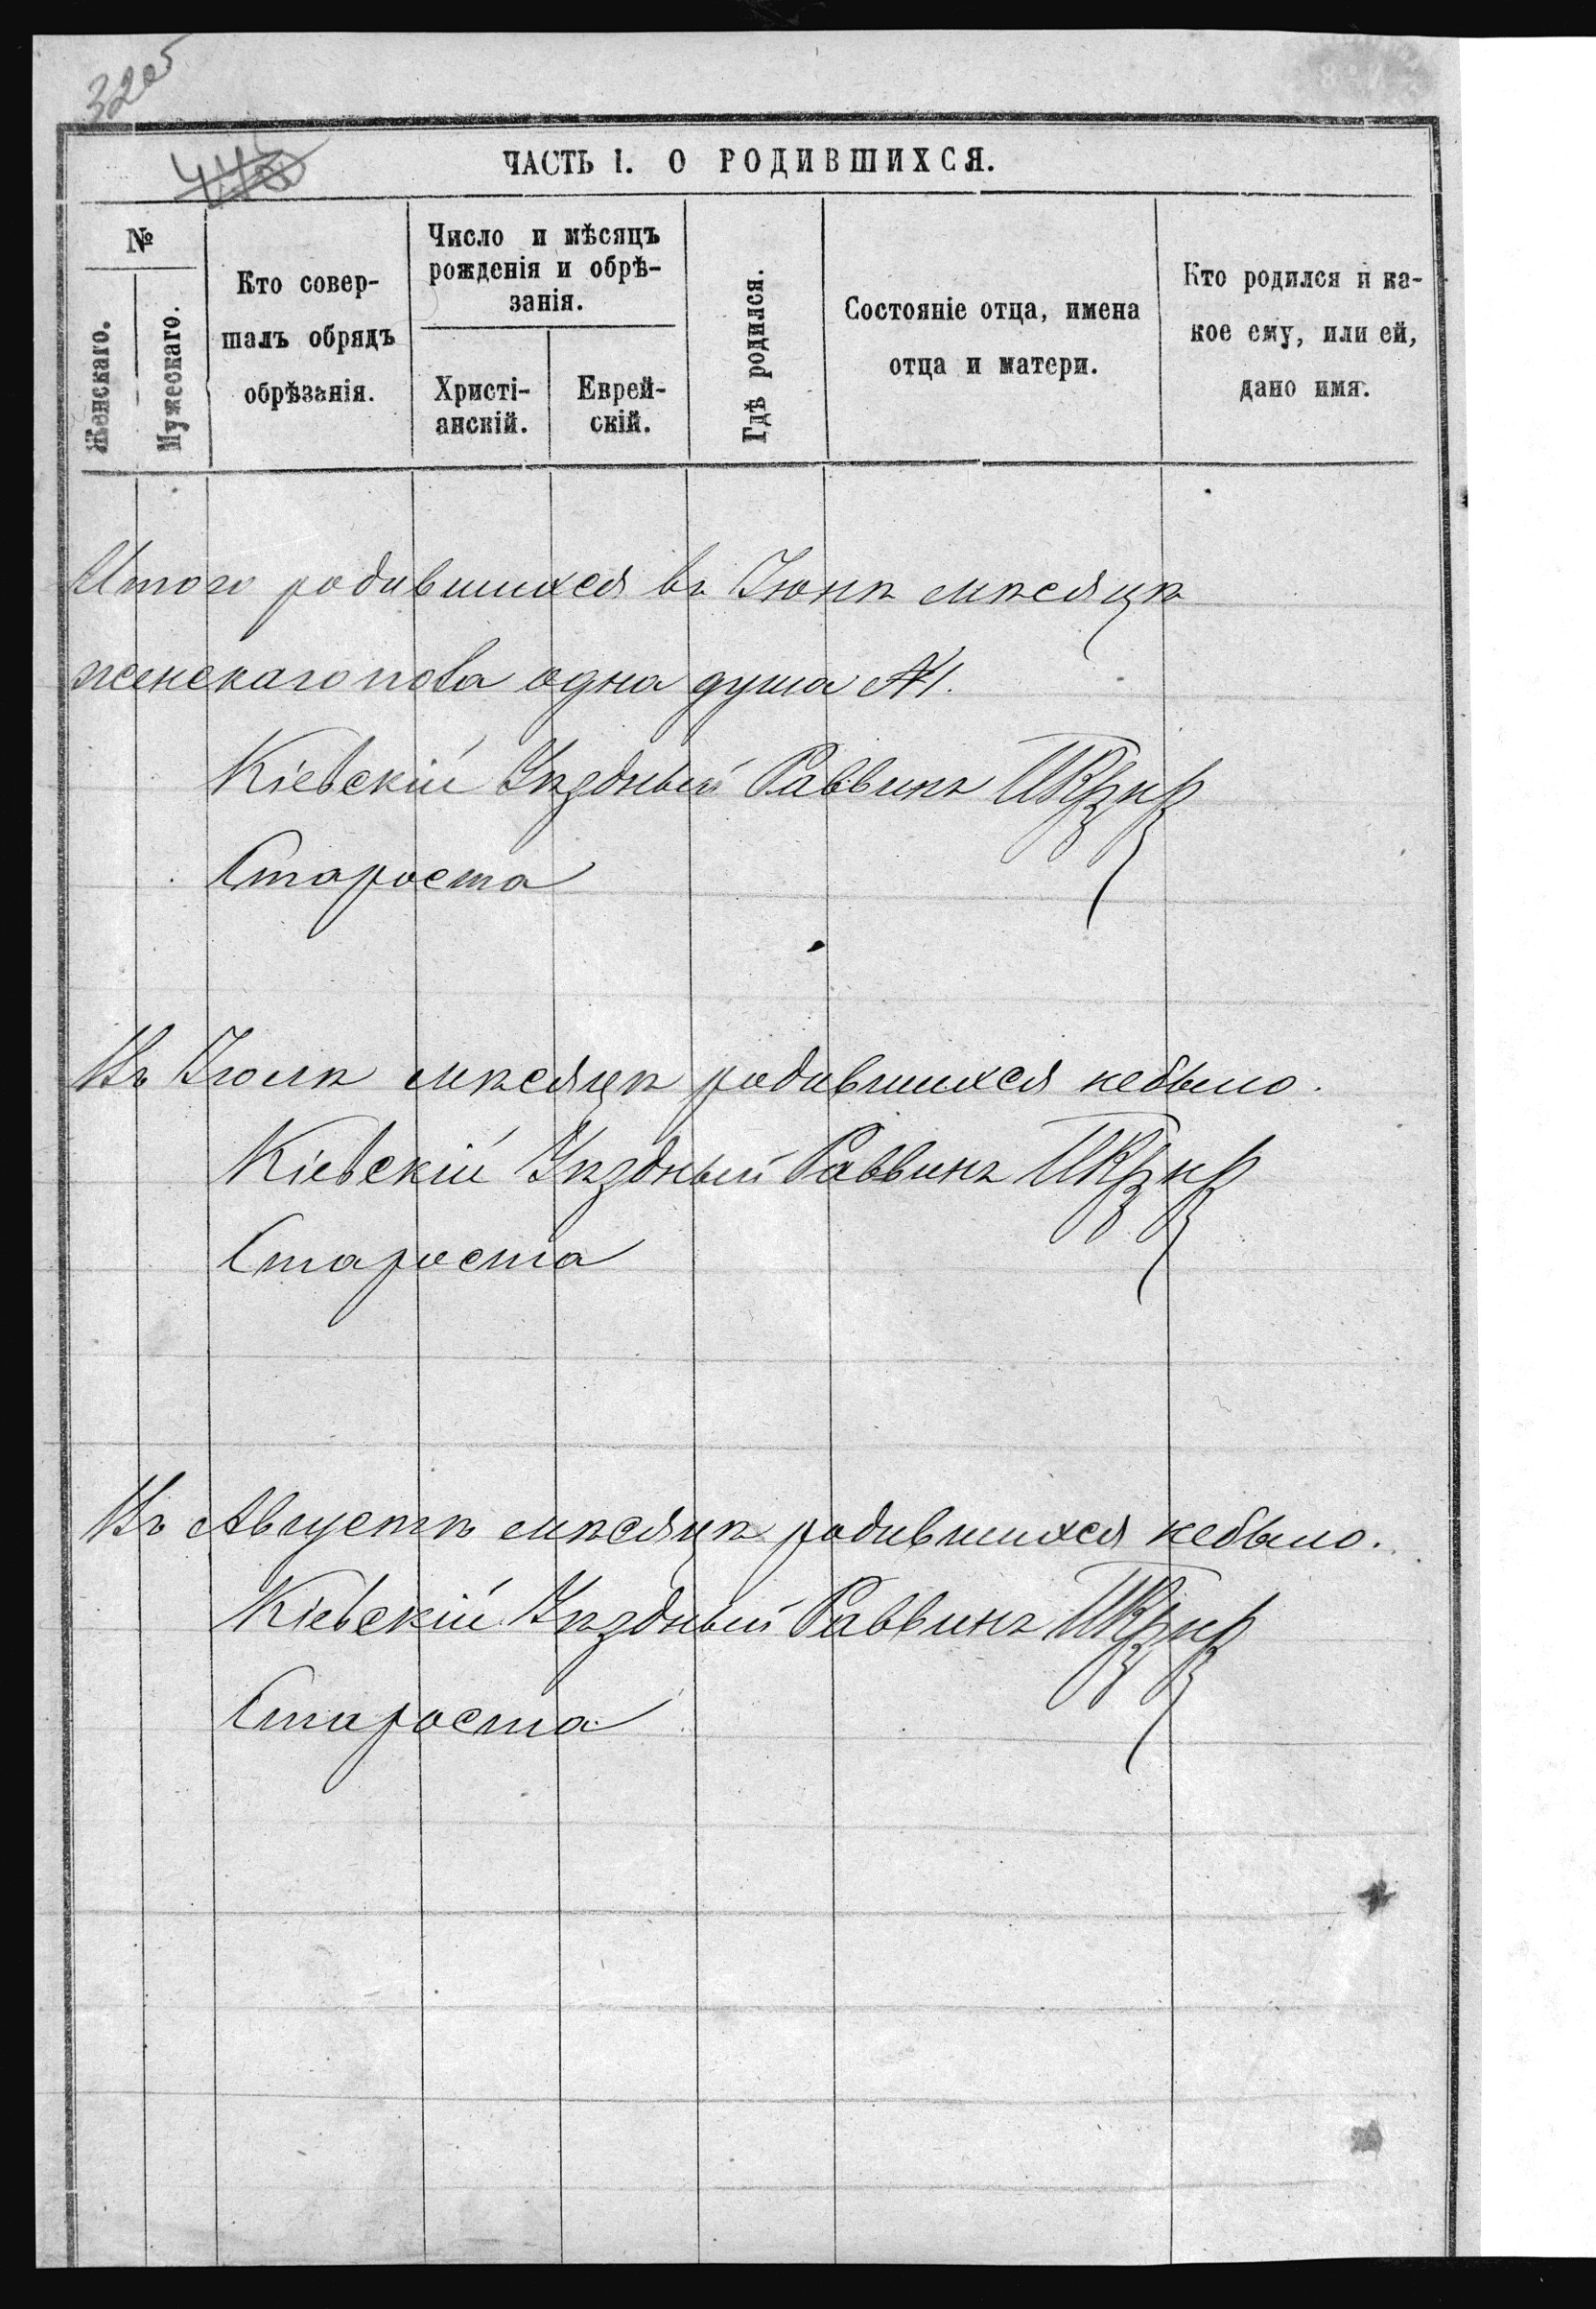 320б
ЧАСТЬ I. О РОДИВШИХСЯ.
№
Женскаго.
Мужескаго.
Кто совер-
шалъ обрядъ
обрѣзанія.
Число и мѣсяцъ
рожденія и обрѣ-
занія.
Христі-
анскій.
Еврей-
скій.
Гдѣ родился.
Состояніе отца, имена
отца и матери.
Кто родился и ка-
кое ему, или ей,
дано имя.
Итого родившихся въ Іюнѣ мѣсяцѣ
женскаго пола одна душа №1.
Кіевскій Уѣздный Раввинъ
Староста
Въ Іюлѣ мѣсяцѣ родившихся небыло.
Кіевскій Уѣздный Раввинъ
Староста
Въ Августѣ мѣсяцѣ родившихся небыло.
Кіевскій Уѣздный Раввинъ
Староста